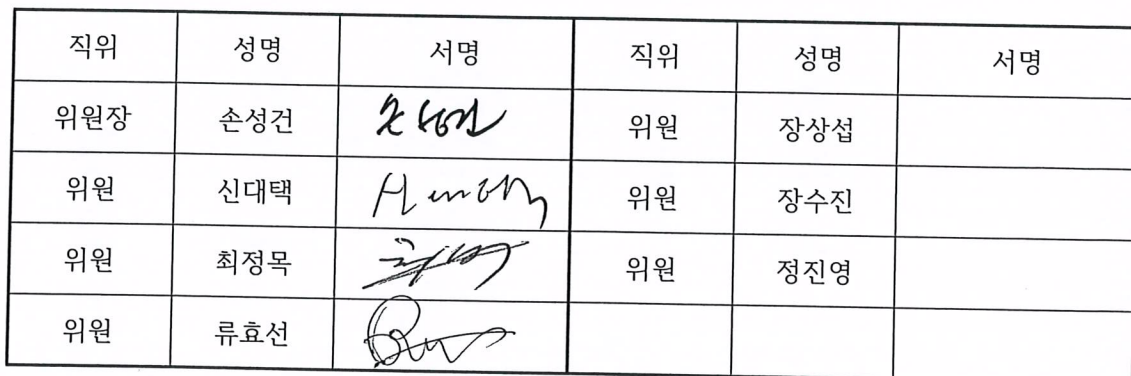 직위 성명 서명 직위 성명 서명
위원장 손성건 손성건 위원 장상섭
위원 신대택 위원 장수진
위원 최정목 위원 정진영
위원 류효선